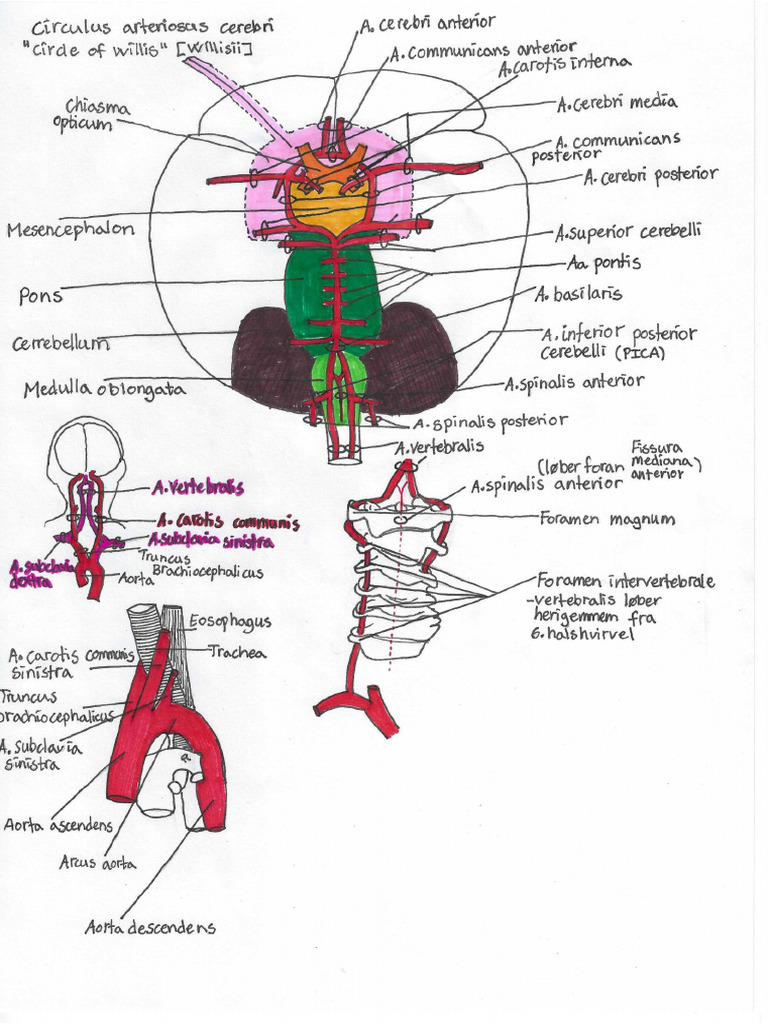 Circulus arteriosus cerebri
"Circle of Willis" [Willisii]
A. cerebri anterior
A. communicans anterior
A. carotis interna
Chiasma
opticum
A. cerebri media
A. communicans
posterior
A. cerebri posterior
Mesencephalon
A. superior cerebelli
Aa pontis
Pons
A. basilaris
Cerrebellum
A. inferior posterior
cerebelli (PICA)
Medulla oblongata
A. spinalis anterior
A. spinalis posterior
A. vertebralis
(løber foran Fissura
mediana)
anterior
A. spinalis anterior
A. vertebralis
A. carotis communis
A. subclavia sinistra
Foramen magnum
A. subclavia
dextra
Truncus
Brachiocephalicus
Aorta
Foramen intervertebrale
-vertebralis løber
herigemmem fra
6. halshvirvel
Eosophagus
Trachea
A. carotis communis
sinistra
Truncus
brachiocephalicus
A. subclavia
sinistra
a
Aorta ascendens
Arcus aorta
Aorta descendens